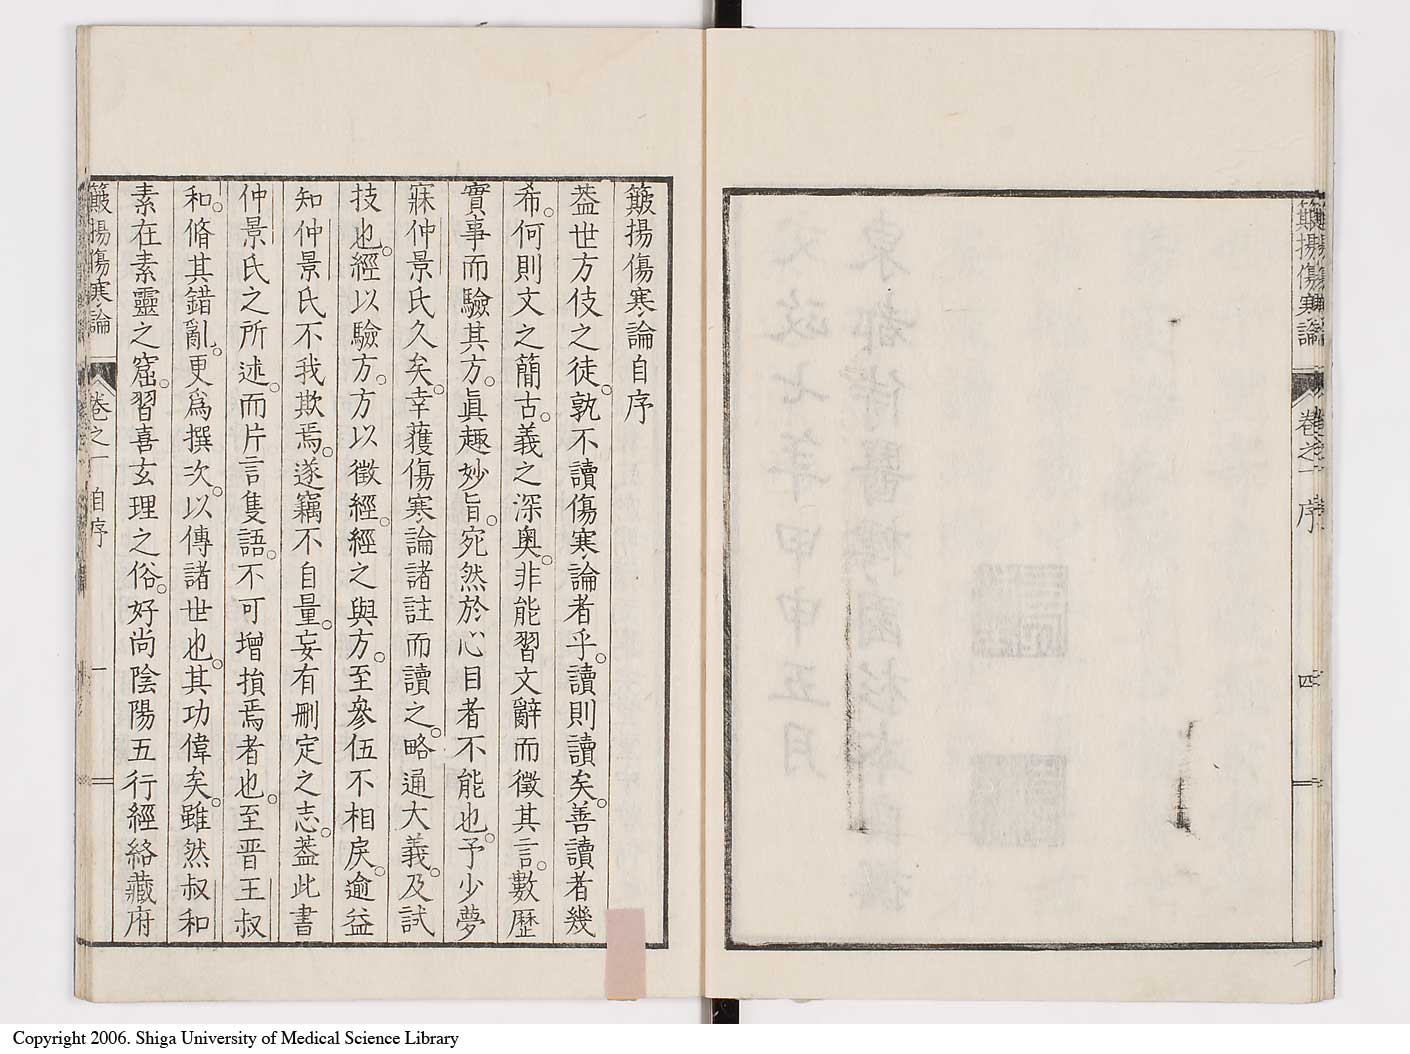 簸揚傷寒論
卷之一
序
四
簸揚傷寒論自序
葢世方伎之徒。孰不讀傷寒論者乎。讀則讀矣。善讀者幾
希。何則文之簡古。義之深奥。非能習文辭而徵其言。數歷
實事而驗其方。眞趣妙旨。宛然於心目者不能也。予少夢
寐仲景氏久矣。幸蓛傷寒論諸註而讀之。略通大義。及試
技也。經以驗方。方以徵經。經之與方。至參伍不相戾。逾益
知仲景氏不我欺焉。遂竊不自量。妄有刪定之志。葢此書
仲景氏之所述。而片言隻語。不可增損焉者也。至晋王叔
和。脩其錯亂。更爲撰次。以傳諸世也。其功偉矣。雖然叔和
素在素靈之窟。習喜玄理之俗。好尚陰陽五行經絡藏府
簸揚傷寒論
卷之一
自序
一
Copyright 2006. Shiga University of Medical Science Library